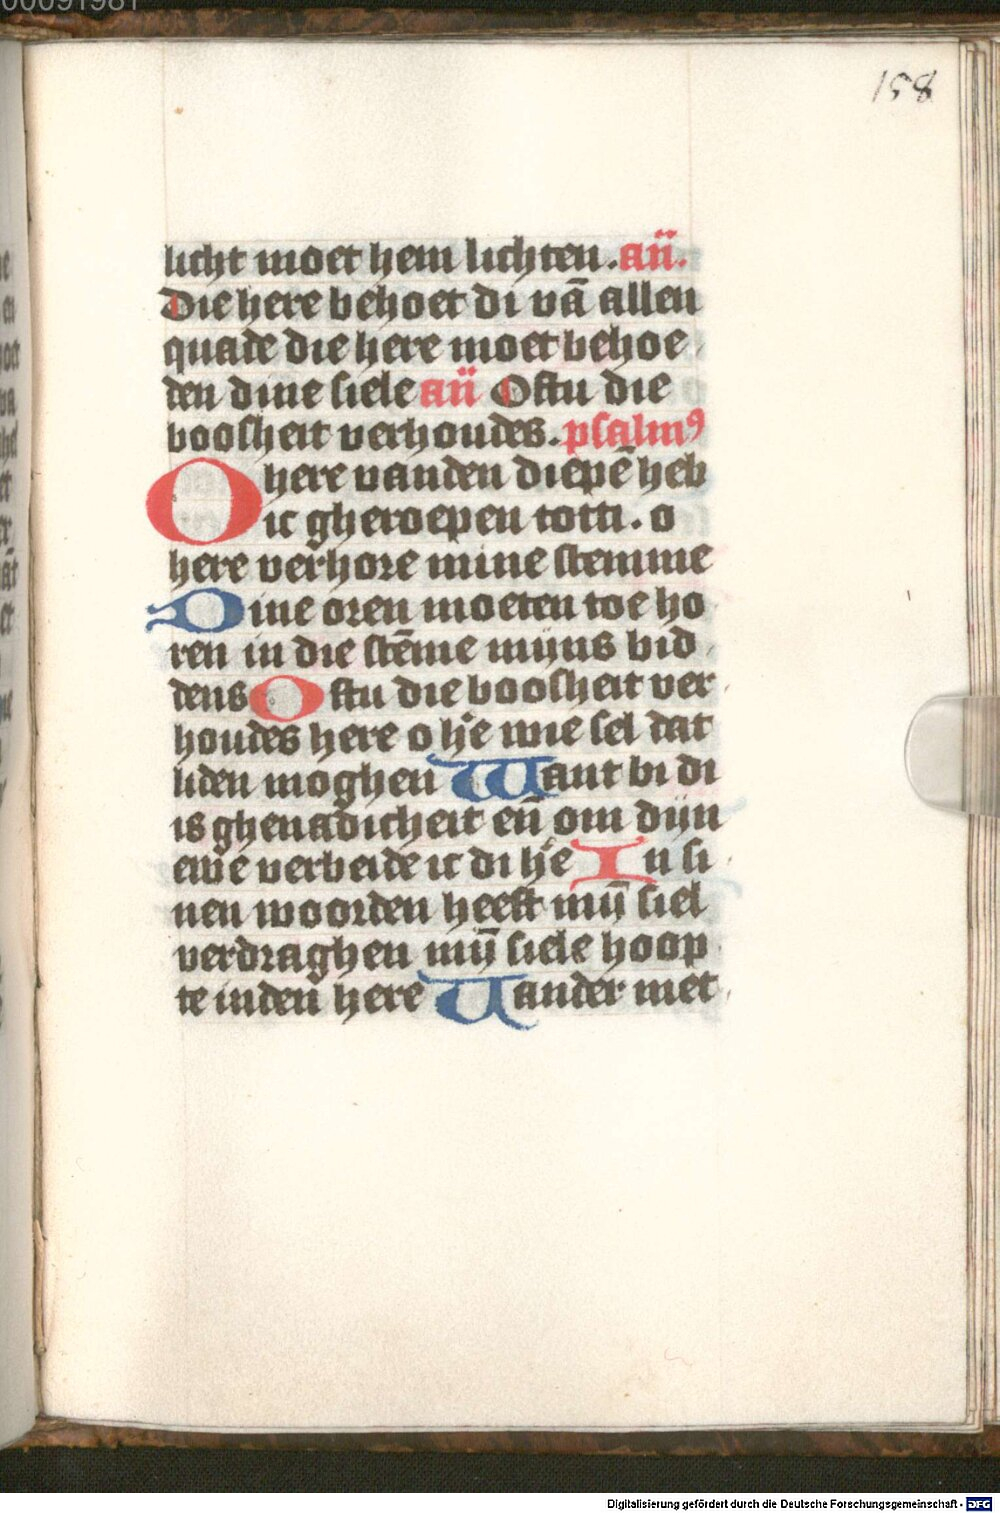 00091981
158
licht moet hem lichten. an̄.
Die here behoet di vā allen
quade die here moet behoe
den dine siele an̄ Ofstu die
boosheit verhoudes. psalmꝰ
O here vanden diepē heb
ic gheroepen totti. o
here verhore mine stemme
Dine oren moeten toe ho
ren in die stēme mijns bid
dens Ofstu die boosheit ver
houdes here o he wie sel dat
liden moghen Want bi di
is ghenadicheit en̄ om dijn
ewe verbeide ic di he In si
nen woorden heeft mij̄ siel
verdraghen mij̄ siele hoop
te inden here Uander met
Digitalisierung gefördert durch die Deutsche Forschungsgemeinschaft - DFG